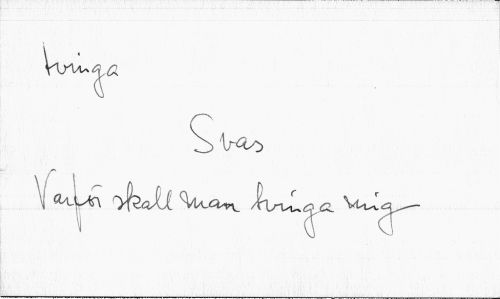 tvinga
Svas
Varför skall man tvinga mig